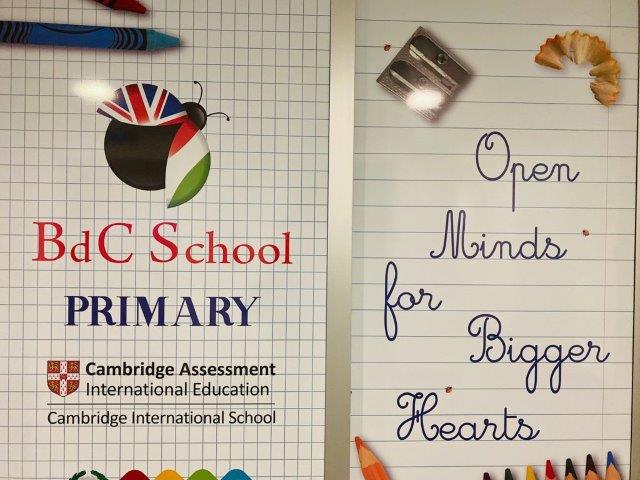 BdC School
PRIMARY
Cambridge Assessment
International Education
Cambridge International School
Open
Minds
for
Bigger
Hearts